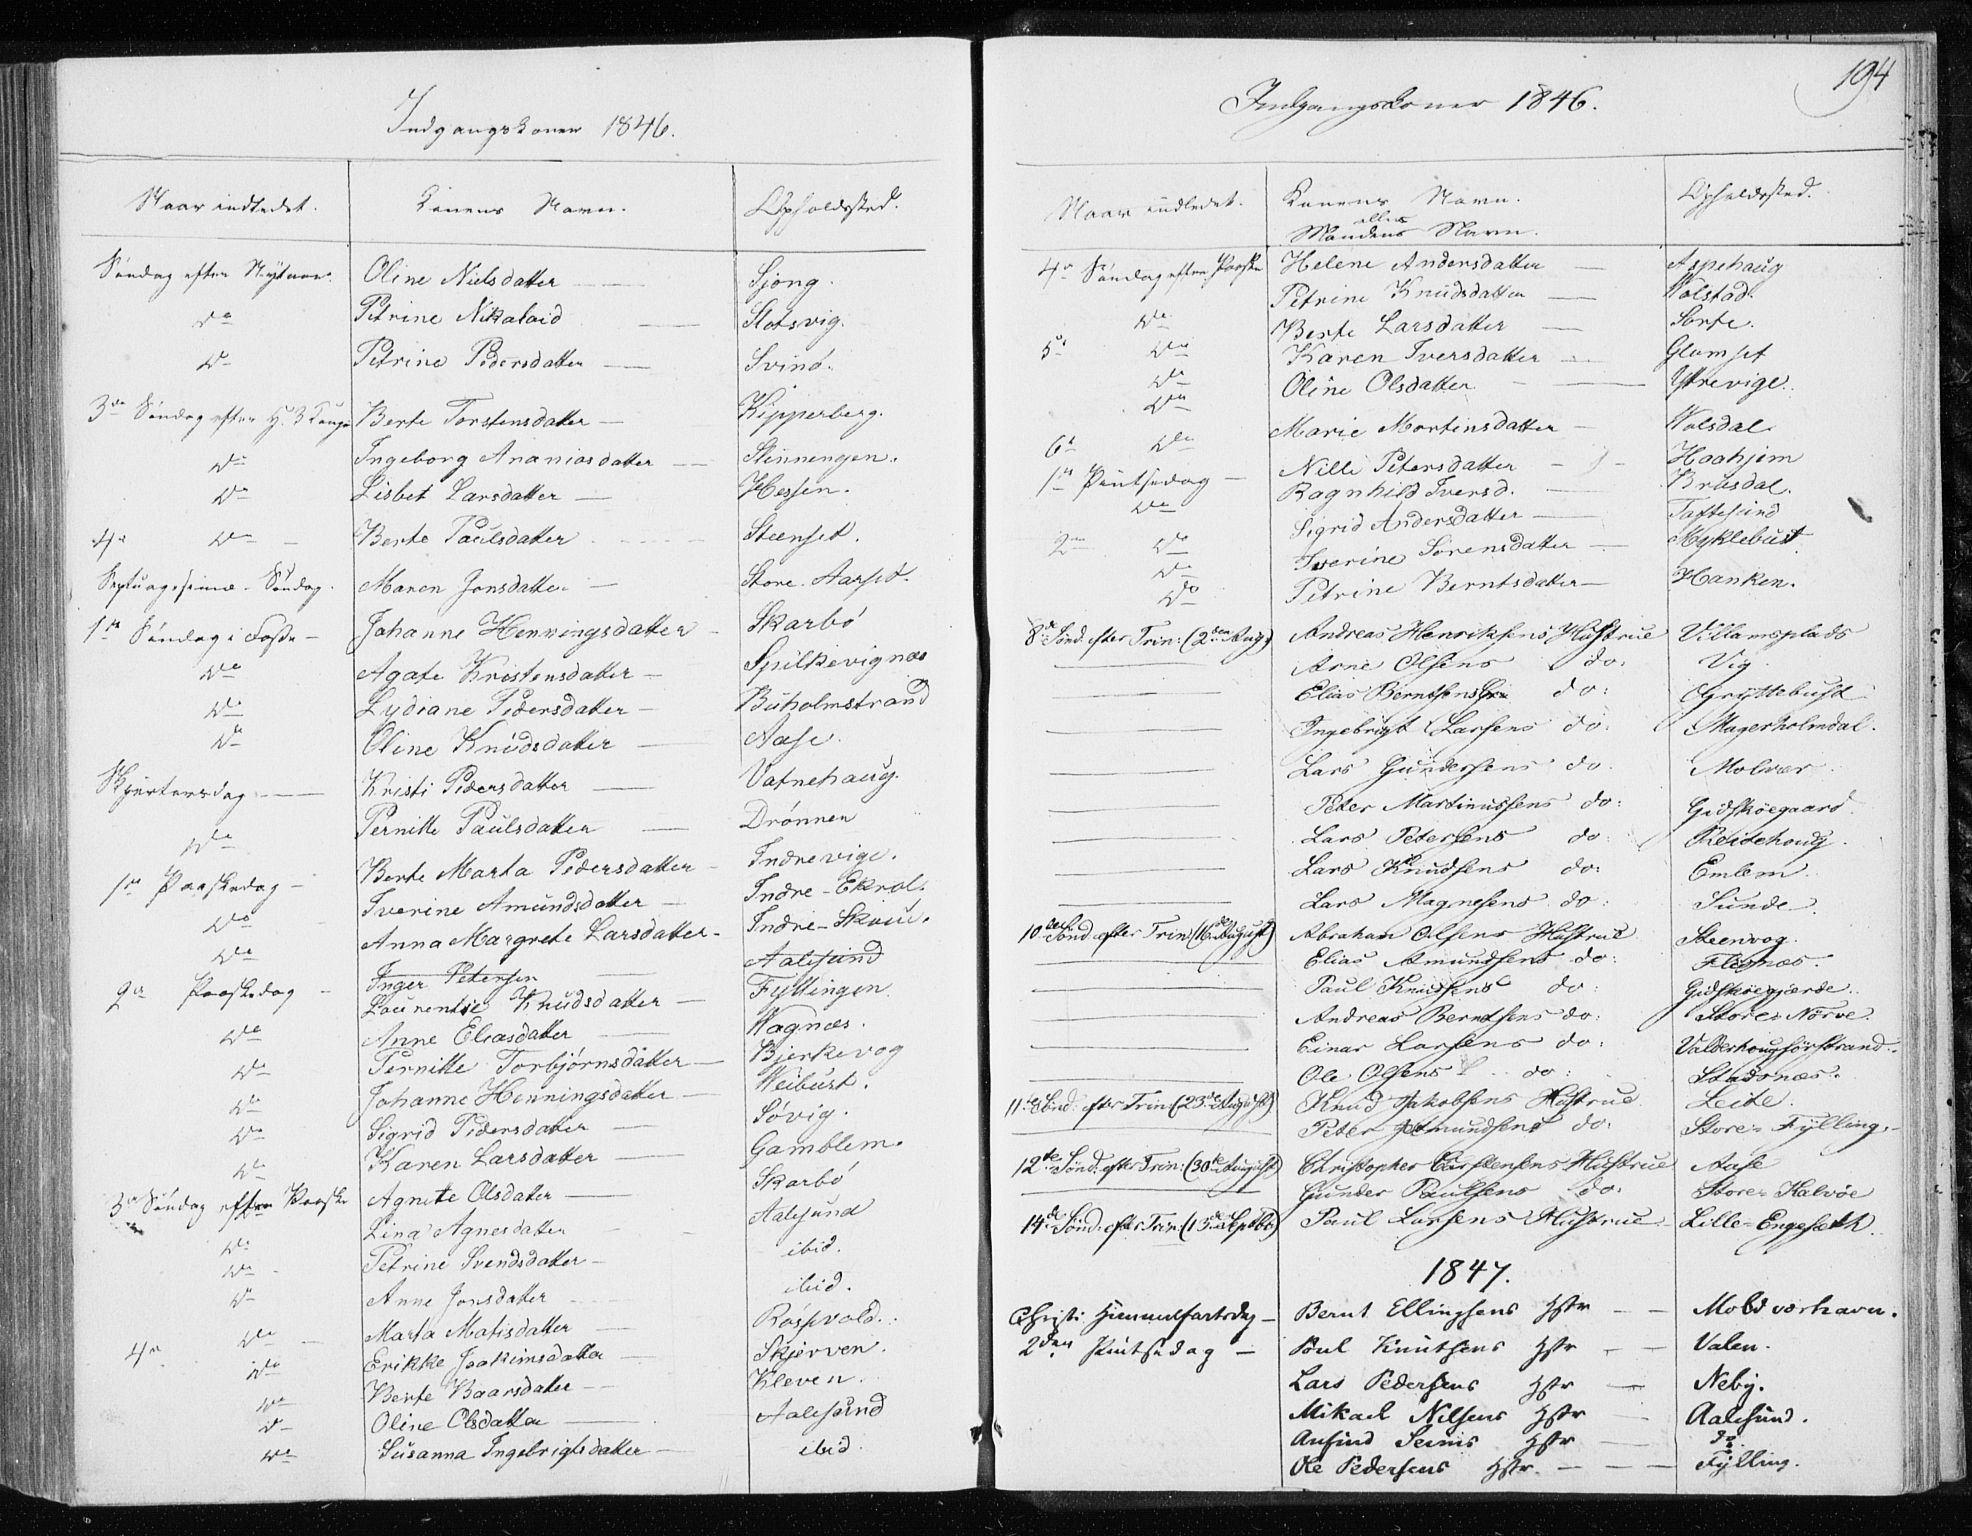 Indgangskoner 1846.
Naar indledet. Konens Navn. Opholdssted.
Søndag efter Nytaar. Oline Nielsdatter — Sjong.
do Petrine Nikolaid — Slotsvig.
do Petrine Pedersdatter — Svinø.
3de Søndag efter H. 3 Konge Berte Torstensdatter — Kipperberg.
do Ingeborg Ananiasdatter — Slinningen.
do Lisbet Larsdatter — Hessen.
4de do — Berte Paulsdatter — Steenset.
Septuagesima-Søndag. Maren Jonsdatter — Store-Aarsø.
1ste Søndag i Faste — Johanne Henningsdatter — Skarbø
do Agate Kristensdatter — Spilkevignæs
do Lydiane Pedersdatter — Buholmstrand
do Oline Knudsdatter — Aase.
Skjærtorsdag — Kristi Pedersdatter — Vatnehaug.
do Pernille Paulsdatter — Drønnen
1ste Paaskedag — Berte Marta Pedersdatter — Indrevige.
do Iverine Amundsdatter — Indre-Ekrol.
do Anna Margrete Larsdatter — Indre-Skoue.
Inger Petersen — Aalesund
2den Paaskedag — Laurentse Knudsdatter — Fyllingen.
do Anne Eliasdatter — Vagnæs.
do Pernille Torbjørnsdatter — Bjerkevog
do Johanne Henningsdatter — Weibust.
do Sigrid Pedersdatter — Søvig.
do Karen Larsdatter — Gamblem.
3de Søndag efter Paaske Agnete Olsdatter — Skarbø
do Lina Agnesdatter — Aalesund
do Petrine Svendsdatter — ibid.
do Anne Jonsdatter — ibid.
4de do — Marta Matisdatter — Røsevold.
do Erikke Joakimsdatter — Skjerven.
do Berte Baarsdatter — Kleven.
do Oline Olsdatter — Aalesund
do Susanna Ingebrigtsdatter — ibid.
194
Indgangskoner 1846.
Naar indledet. Konens Navn. Opholdssted.
eller
Mandens Navn.
4de Søndag efter Paaske Helene Andersdatter — Aspehaug
do Petrine Knudsdatter — Wolstad.
5te do Berte Larsdatter — Sorte.
do Karen Iversdatter — Glomset
do Oline Olsdatter — Ytrevige.
6te do Marie Mortensdatter — Volsdal.
1ste Pintsedag — Nille Petersdatter — Haahjem
do Ragnhild Iversd. — Brusdal.
2den do Sigrid Andersdatter — Taftesund
do Iverine Sørensdatter — Myklebust
do Petrine Berntsdatter — Hanken.
8de Sønd. efter Trin: (2den Aug.) Andreas Henriksens Hustrue Villamsplads
— Arne Olsens do: Vig.
— Elias Berntsens do: Gryttebust
— Ingebrigt Larsens do: Magerholmdal.
— Lars Gundersens do. Molvær.
— Peter Martinussens do: Gidskøegaard.
— Lars Petersens do: Reitehoug.
— Lars Knudsens do: Emlem.
— Lars Magnesens do: Sunde.
10de Sønd. efter Trin: (16de August) Abraham Olsens Hustrue Steenvog.
— Elias Amundsens do: Flisnæs.
— Paul Knudsens do: Gidskøegjærde.
— Andreas Berntsens do: Store-Nørve.
— Einar Larsens do: Valderhougsförstrand.
— Ole Olsens do: Stadsnæs.
11te Sønd. efter Trin (23de August) Knud Jakobsens Hustrue Leite.
— Peter Amundsens do: Store-Fylling.
12te Sønd. efter Trin: (30te August) Christopher Carstensens Hustrue Aase
— Gunder Paulsens do: Store-Kalvøe
14de Sønd. efter Trin: (13de Septbr) Paul Larsens Hustrue — Lille-Engeseth.
1847.
Christi Himmelfartsdag — Bernt Ellingsens Hstr — Moldværhavn.
2den Pintsedag — Poul Knutsens Hstr — Valen.
Lars Pedersens Hstr — Neby.
Mikael Nilsens Hstr — Aalesund.
Anfind Seims Hstr — do.
Ole Pedersens Hstr. — Fylling.